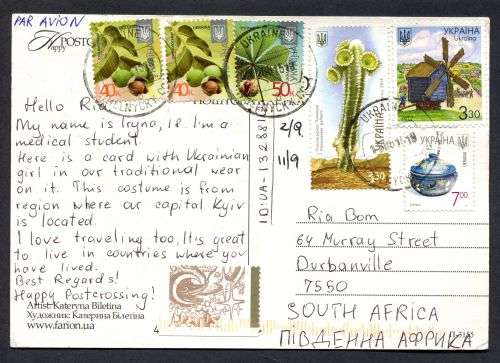 PAR AVION
Happy
УКРАЇНА
40к
40к
50к
УКРАЇНА
3.30
УКРАЇНА
Ukraina
3.30
УКРАЇНА
7.00
Hello Ria
My name is Iryna, I'm a
medical student.
Here is a card with Ukrainian
girl in our traditional wear
on it. This costume is from
region where our capital Kyiv
is located.
I love traveling too, It's great
to live in countries where you
have lived.
Best Regards!
Happy Postcrossing!
Artist Kateryna Biletina
Художник Катерина Білетіна
www.farion.ua
4
ID: UA-1328811
2/9
11/9
Ria Bom
64 Murray Street
Durbanville
7550
SOUTH AFRICA
ПІВДЕННА АФРИКА